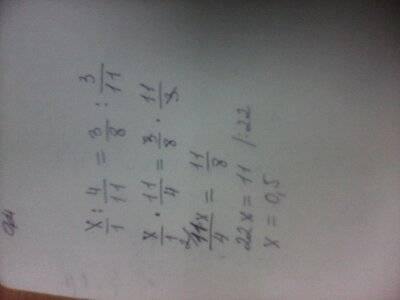 x/1 : 4/11 = 3/8 : 3/11
x/1 · 11/4 = 3/8 · 11/3
11x/4 = 11/8
22x = 11 /:22
x = 0,5